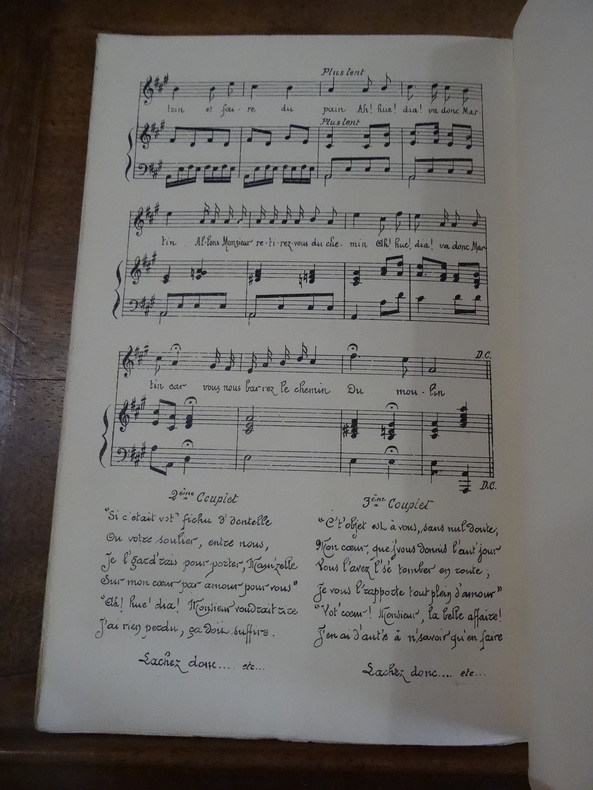 Plus lent
tin et fai - re du pain Ah! hue! dia! va donc Mar-
Plus lent
tin Al-lons Monsieur re-ti-rez-vous du che - min Ah! hue! dia! va donc Mar-
D.C.
tin car vous nous barrez le chemin Du mou - lin
D.C.
2ème Couplet
"Si c'était vot' fichu d'dentelle
Ou votre soulier, entre nous,
Je l'gard'rais pour porter, Mam'zelle
Sur mon cœur par amour pour vous"
"Ah! hue! dia! Monsieur voudrait rire
J'ai rien perdu, ça doit suffire.
Lachez donc.... etc...
3ème Couplet
"C't'objet est à vous, sans nul doute;
Mon cœur, que j'vous donnis l'aut'jour
Vous l'avez l'sé tomber en route,
Je vous l'rapporte tout plein d'amour"
"Vot'cœur! Monsieur, la belle affaire!
J'en ai d'aut's à n'savoir qu'en faire
Lachez donc.... etc...